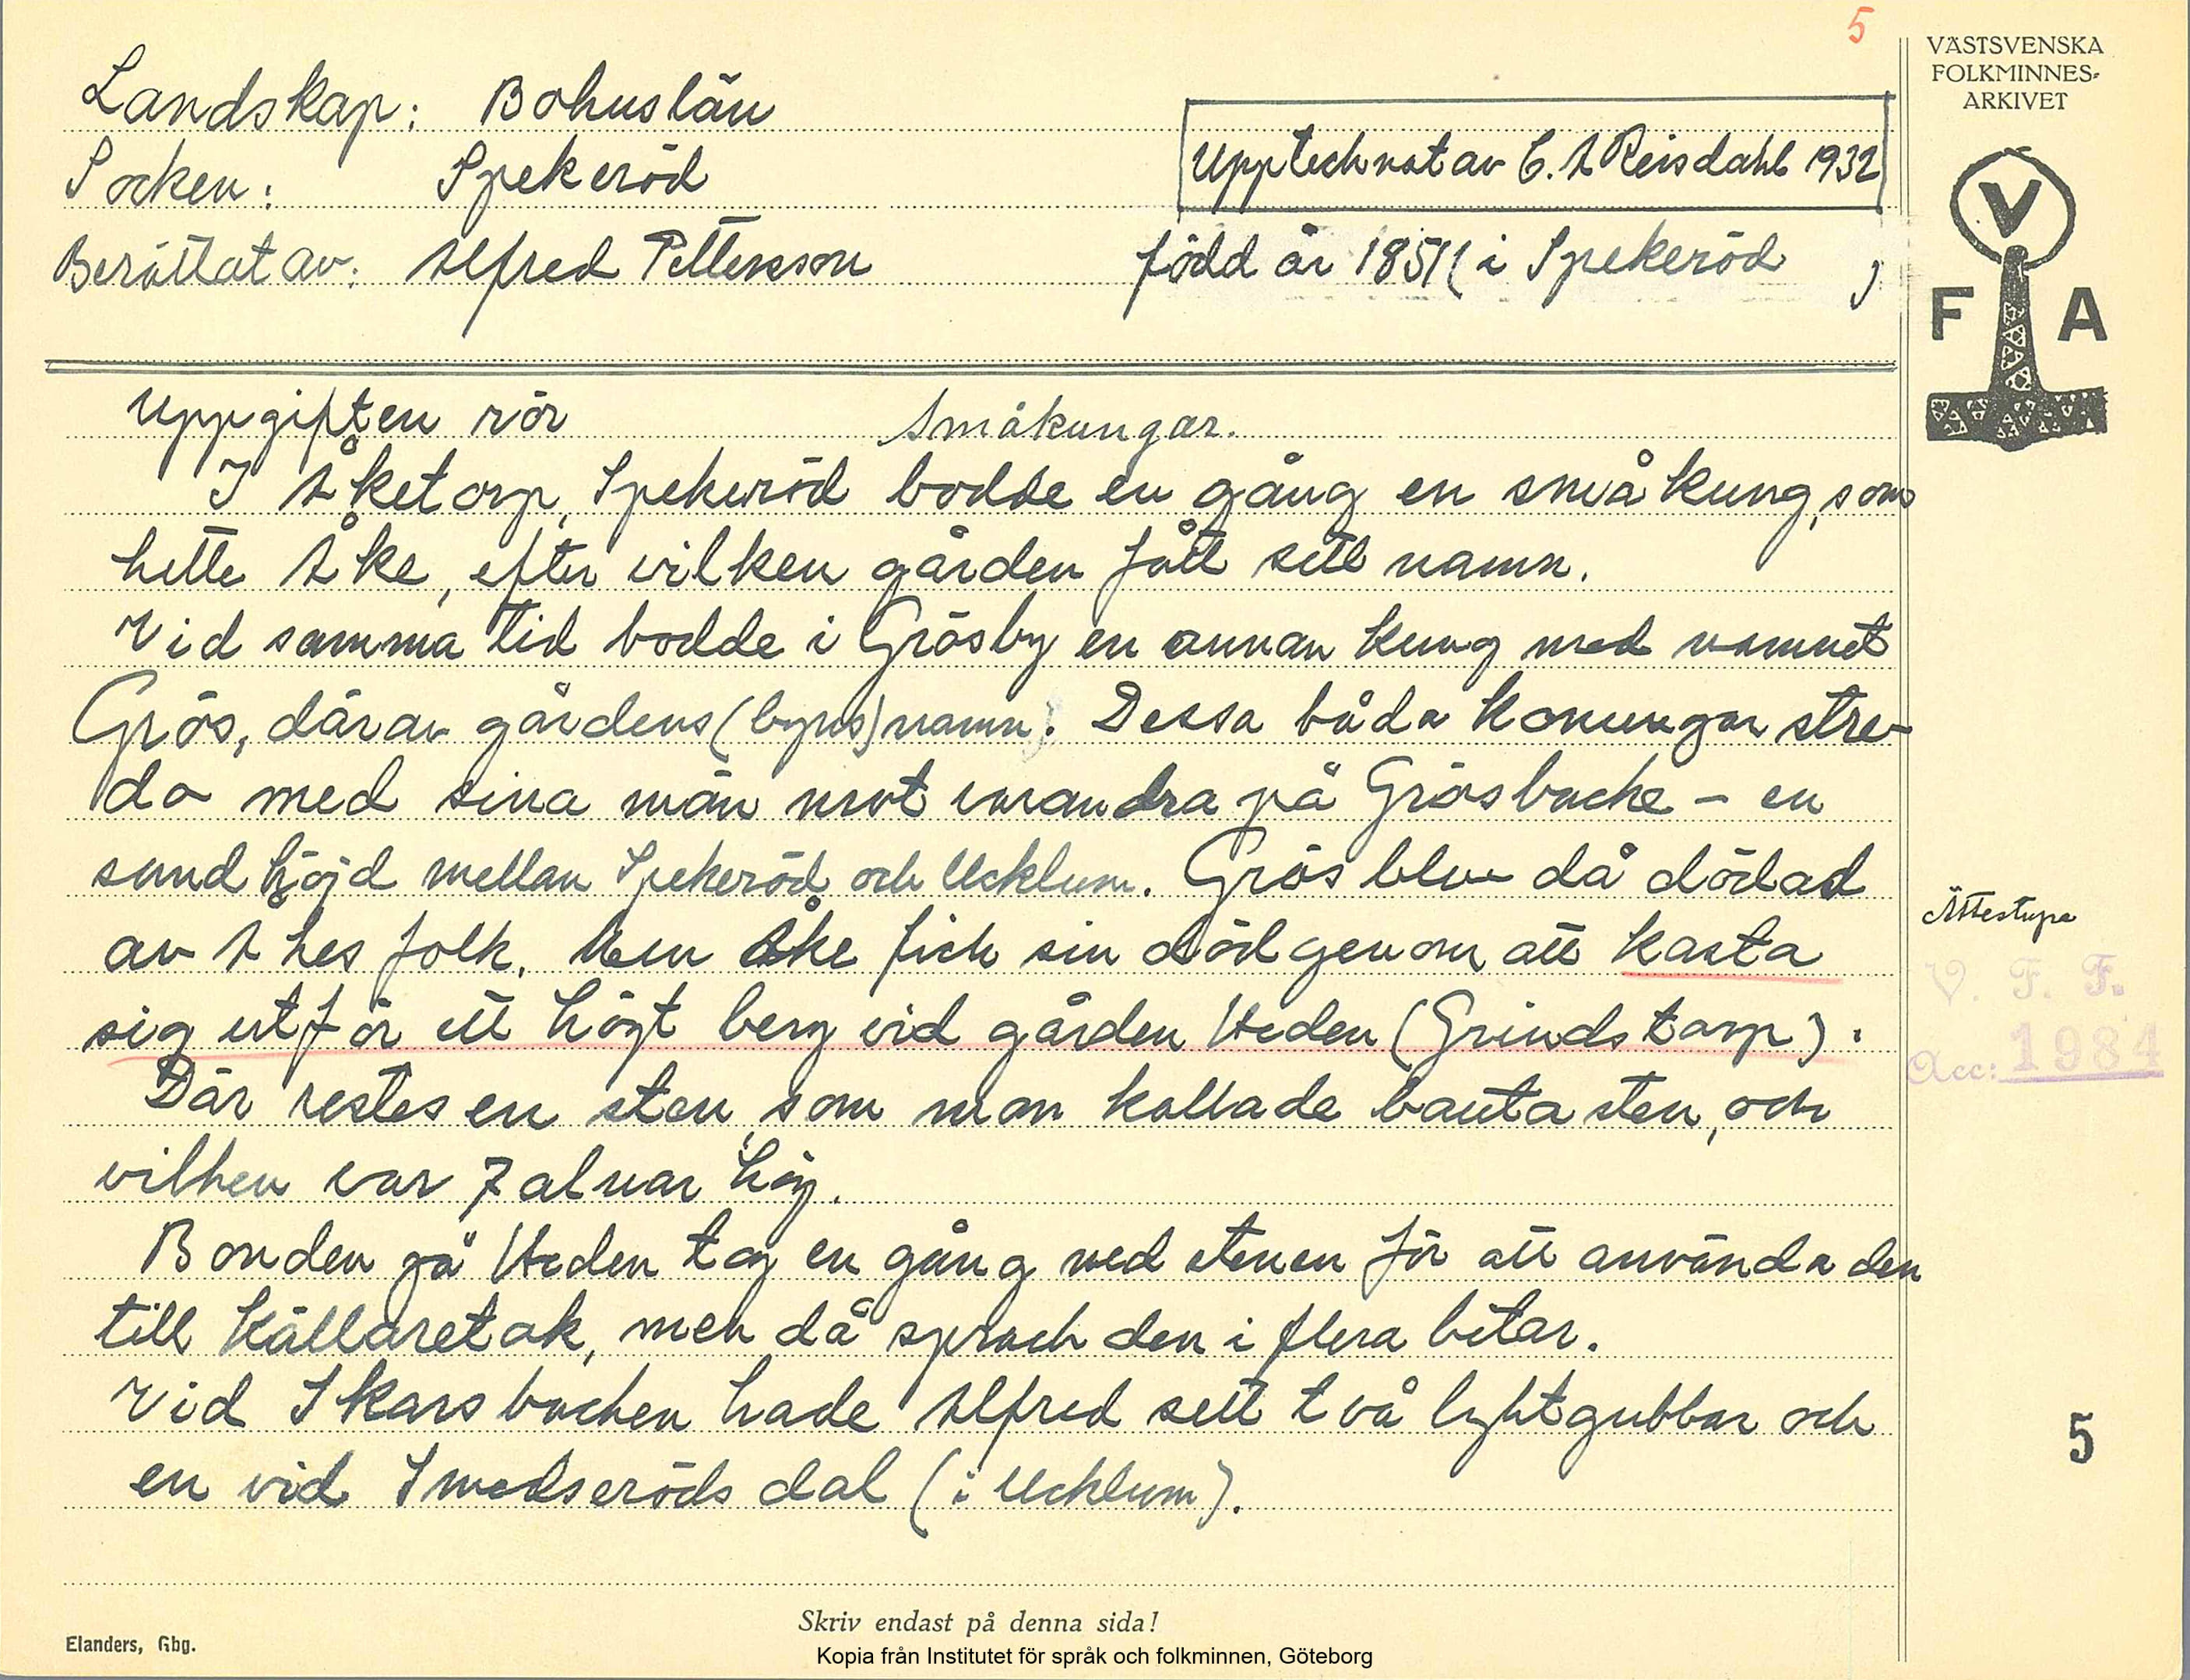 5
VÄSTSVENSKA
FOLKMINNES-
ARKIVET
V
F A
Landskap: Bohuslän
Upptecknat av C. A Reisdahl 1932
Socken: Spekeröd
Berättat av: Alfred Pettersson född år 1851 (i Spekeröd )
Uppgiften rör Småkungar.
I Åketorp, Spekeröd bodde en gång en småkung, som
hette Åke, efter vilken gården fått sitt namn.
Vid samma tid bodde i Grösby en annan kung med namnet
Grös, därav gårdens (byns) namn. Dessa båda konungar stre-
do med sina män mot varandra på Grösbacke - en
sand höjd mellan Spekeröd och Ucklum. Grös blev då dödad
av Åkes folk. Men Åke fick sin död genom att kasta
sig utför ett högt berg vid gården Heden (Grindstorp).
Där restes en sten, som man kallade bautasten, och
vilken var 7 alnar hög.
Bonden på Heden tog en gång ned stenen för att använda den
till källaretak, men då sprack den i flera bitar.
Vid Skarsbacken hade Alfred sett två lyktgubbar och
en vid Smedseröds dal (i Ucklum).
Ättestupa
V. F. F.
Acc: 1984
5
Skriv endast på denna sida!
Elanders, Gbg.
Kopia från Institutet för språk och folkminnen, Göteborg